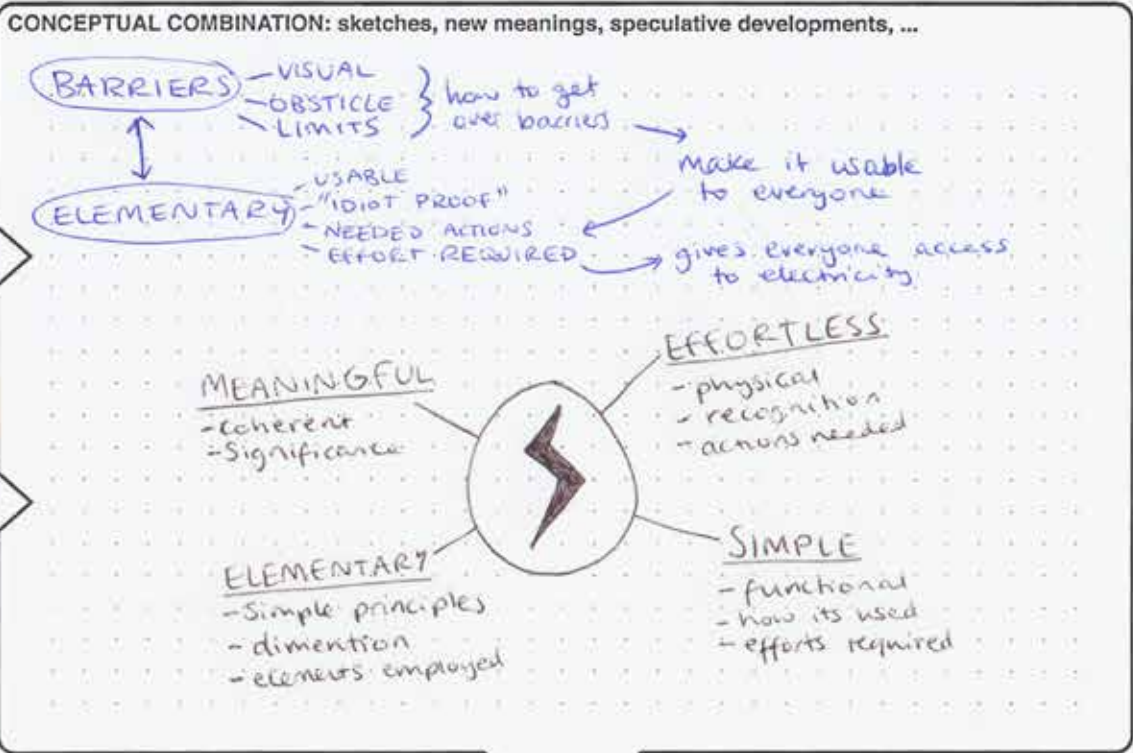 CONCEPTUAL COMBINATION: sketches, new meanings, speculative developments, ...
BARRIERS
- VISUAL
- OBSTICLE
- LIMITS
how to get
over barriers
make it usable
to everyone
ELEMENTARY
- USABLE
- "IDIOT PROOF"
- NEEDED ACTIONS
- EFFORT REQUIRED
gives everyone access
to electricity
MEANINGFUL
- coherent
- Significance
EFFORTLESS
- physical
- recognition
- actions needed
ELEMENTARY
- Simple principles
- dimention
- elements employed
SIMPLE
- functional
- how its used
- efforts required